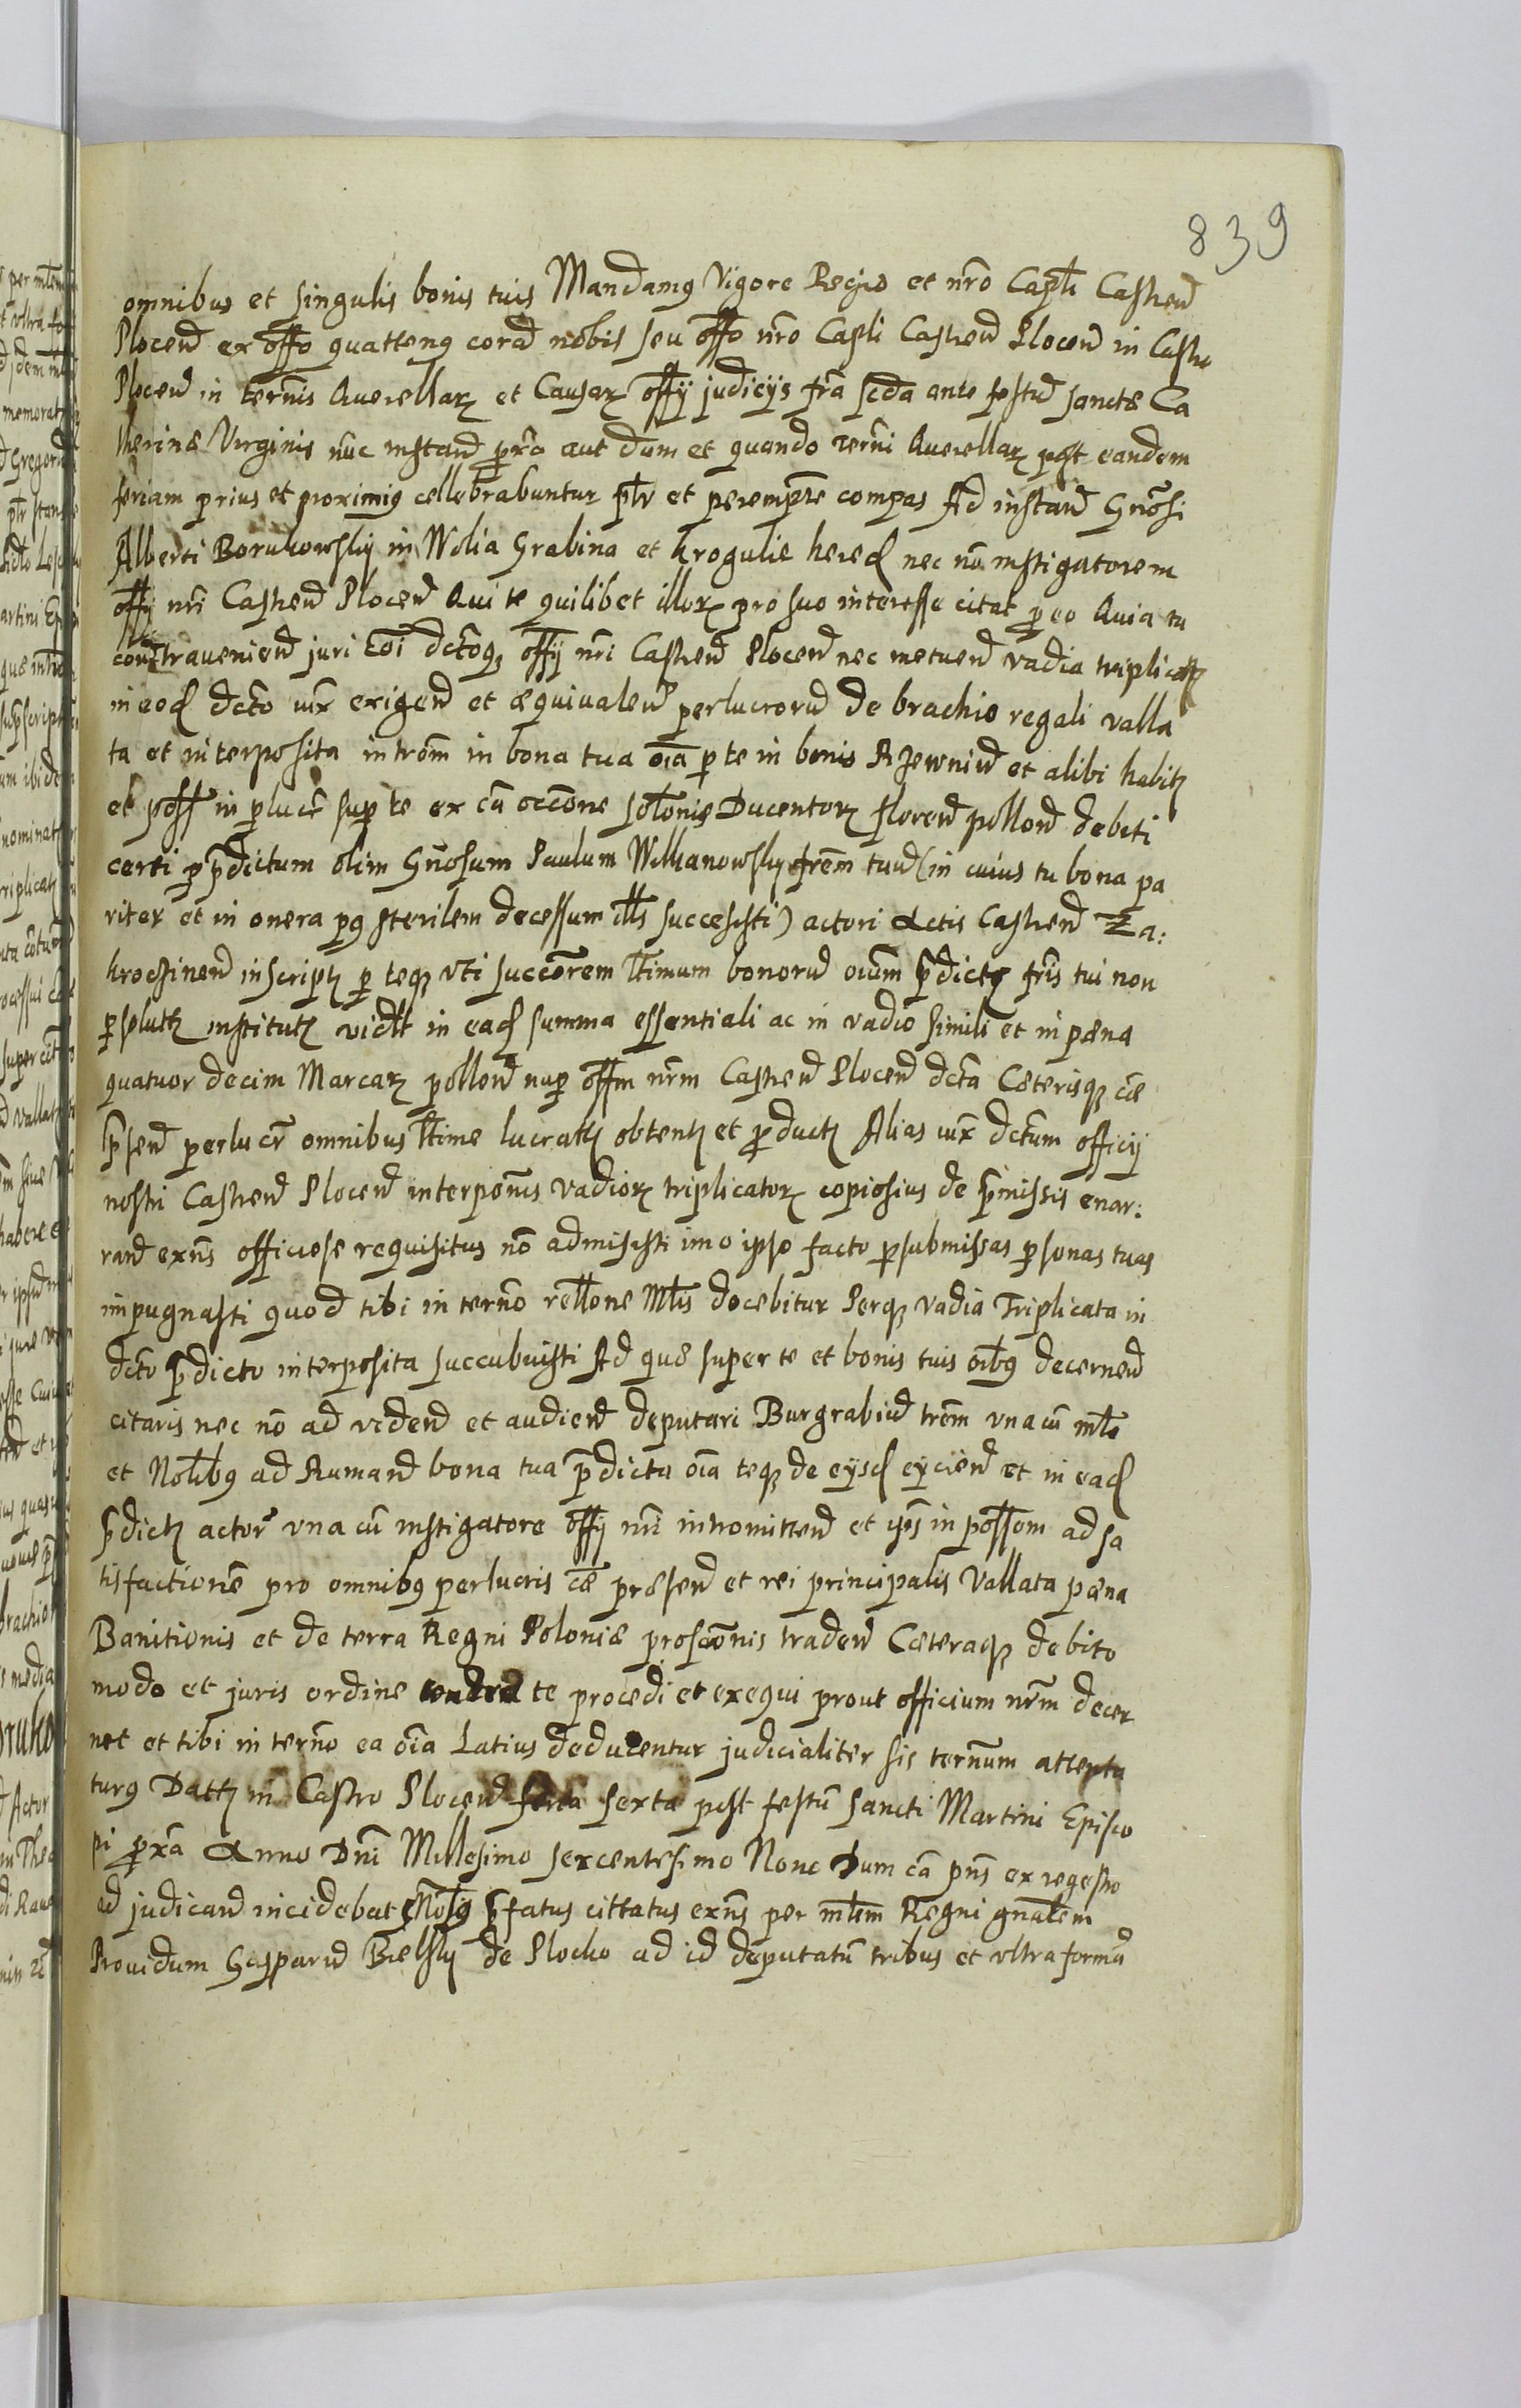 839
omnibus et singulis bonis tuis Mandamus Vigore Regio et nro Capli Castren
Plocen ex offo quattenus coram nobis seu offo nro Capli Castren Plocen in Castro
Plocen in terminis Querellar et Causar offij judicijs fra scda ante festum sanctæ Ca
therinæ Virginis nunc instan prxa aut dum et quando termi Querellar post eandem
feriam prius et proximius cellebrabuntur pltr et perempte compas Ad instan Gnosi
Alberti Borukowsky in Wolia Grabina et Krogulie hered nec no instigatorem
offij nri Castren Plocen Qui te quilibet illorx pro suo interesse citat pro eo Quia tu
contravenien juri coi dctoq offij nri Castren Plocen nec metuen vadia triplicatt
in eod dcto vix exigen et æquivalen perlucrorum de brachio regali valla
ta et interposita introm in bona tua oia per te in bonis Rzewnin et alibi habitt
et poss in plucr sup te ex ca occone sptonis Ducentor floren pollon debiti
certi p prædictum olim Gnosum Paulum Wilkanowsky frem tuum (in cuius tu bona pa
riter et in onera pus sterilem decessum illis successisti) actori Actis Castren Za:
kroczinen inscriptt p teqz vti succorem ltimum bonorum oium prædictt fris tui non
psolutt institutt vidlt in ead summa essentiali ac in vadio simili et in pæna
quatuor decim Marcar pollon nup offm nrm Castren Plocen dcta Cæterisqz cæ
præsen perlucr omnibus ltime lucratt obtentt et productt Alias iux dctum officij
nostri Castren Plocen interponis vadior triplicator copiosius de præmissis enar:
ran exns officiose requisitus no admisisti imo ipso facto p submissas personas tuas
impugnasti quod tibi in termo rellone Mlis docebitur Perqz vadia Triplicata in
dcto prædicto interposita succubuisti Ad quæ super te et bonis tuis oibus decernen
citaris nec no ad viden et audien deputari Burgrabium trem vna cu mlo
et Nobibus ad Rumand bona tua prædicta oia teqz de eysd eycien et in ead
prædictt actor vna cu instigatore offij nri intromitten et ipos in possom ad sa
tisfactione pro omnibus perlucris cæ præsen et rei principalis Vallata pæna
Banitionis et de terra Regni Poloniæ prosconis traden Cæteraqz debito
modo et juris ordine contra te procedi et exequi prout officium nrm decer
net et tibi in termo ea oia Latius deducentur judicialiter sis termum attenta
turus Datt in Castro Plocen feria sexta post festu sancti Martini Episco
pi prxa Anno Dni Millesimo sexcentesimo Nono Dum ca pns ex regestro
ad judican incidebat Gnosus præfatus cittatus exns per mlem Regni gnalem
Providum Gasparum Bielsky de Plocko ad id deputatu tribus et vltra forma